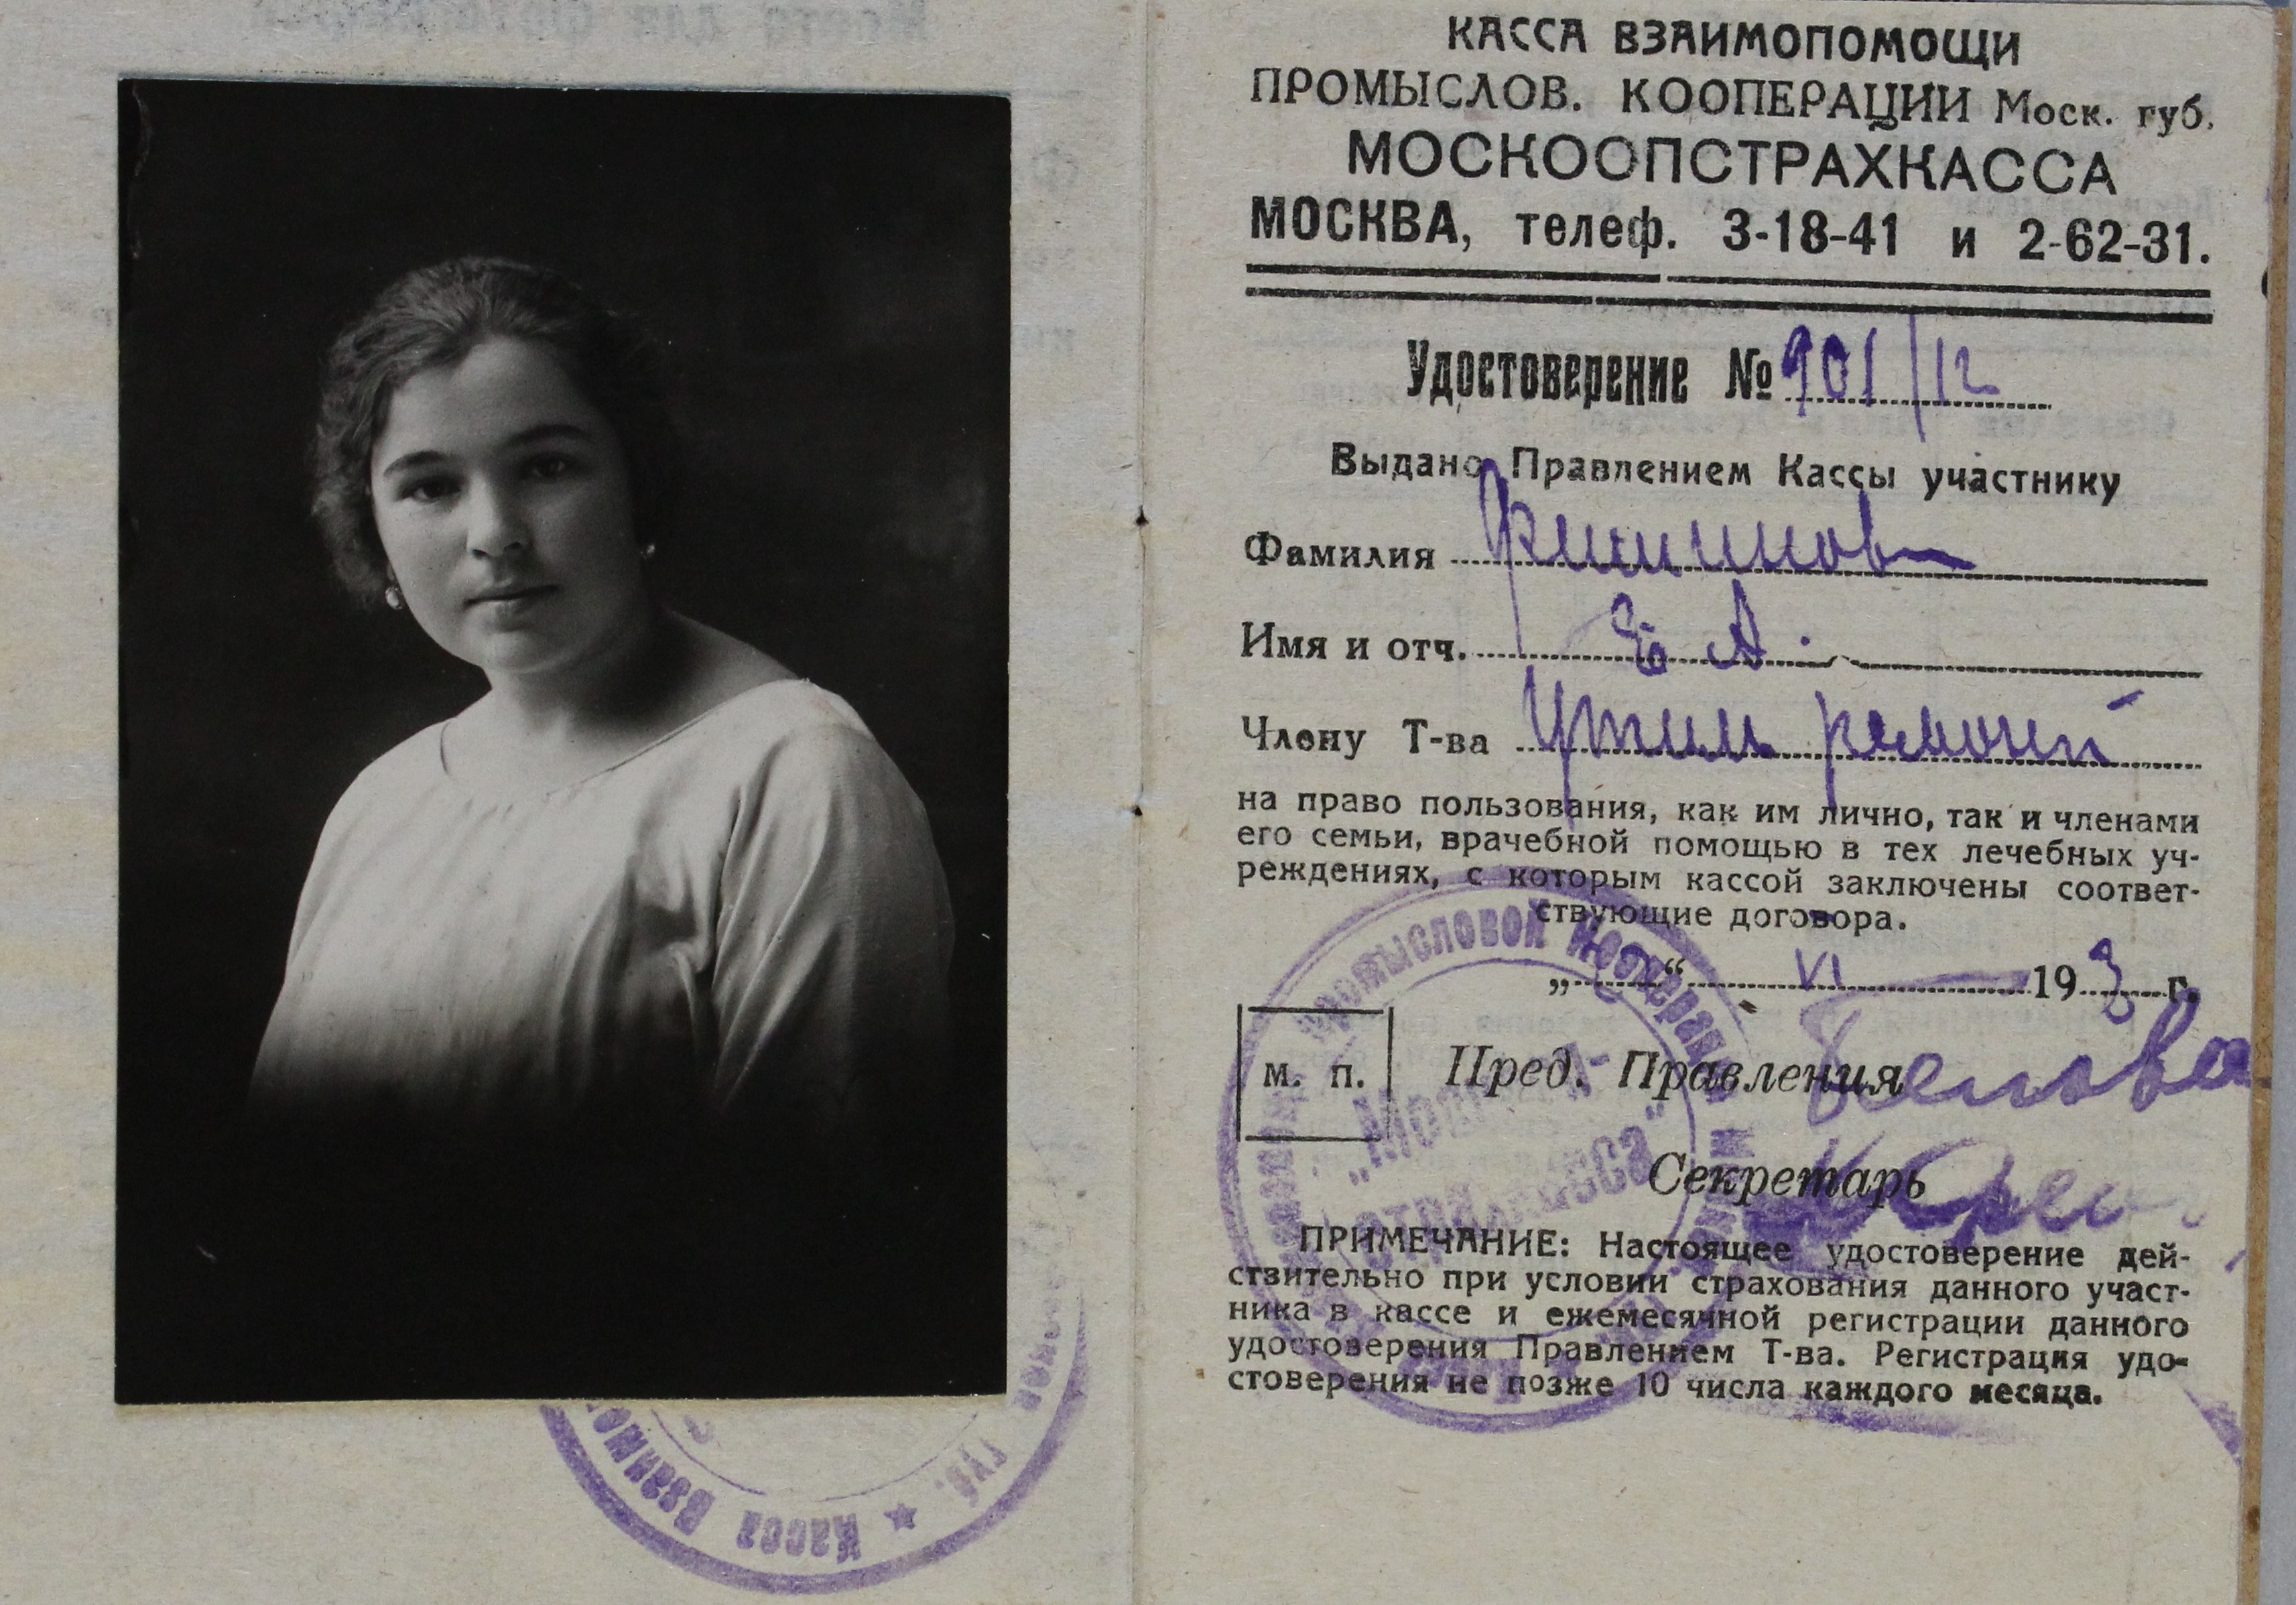 КАССА ВЗАИМОПОМОЩИ
ПРОМЫСЛОВ. КООПЕРАЦИИ Моск. губ.
МОСКООПСТРАХКАССА
МОСКВА, телеф. 3-18-41 и 2-62-31.
Удостоверение № 901/12
Выдано Правлением Кассы участнику
Фамилия
Имя и отч. Е А.
Члену Т-ва Утиль ремонт
на право пользования, как им лично, так и членами
его семьи, врачебной помощью в тех лечебных уч-
реждениях, с которым кассой заключены соответ-
ствующие договора.
„ “ VI 193 г.
м. п. Пред. Правления
Секретарь
ПРИМЕЧАНИЕ: Настоящее удостоверение дей-
ствительно при условии страхования данного участ-
ника в кассе и ежемесячной регистрации данного
удостоверения Правлением Т-ва. Регистрация удо-
стоверения не позже 10 числа каждого месяца.
Промысловой Кооперации
губ. ★ Касса Взаимопо